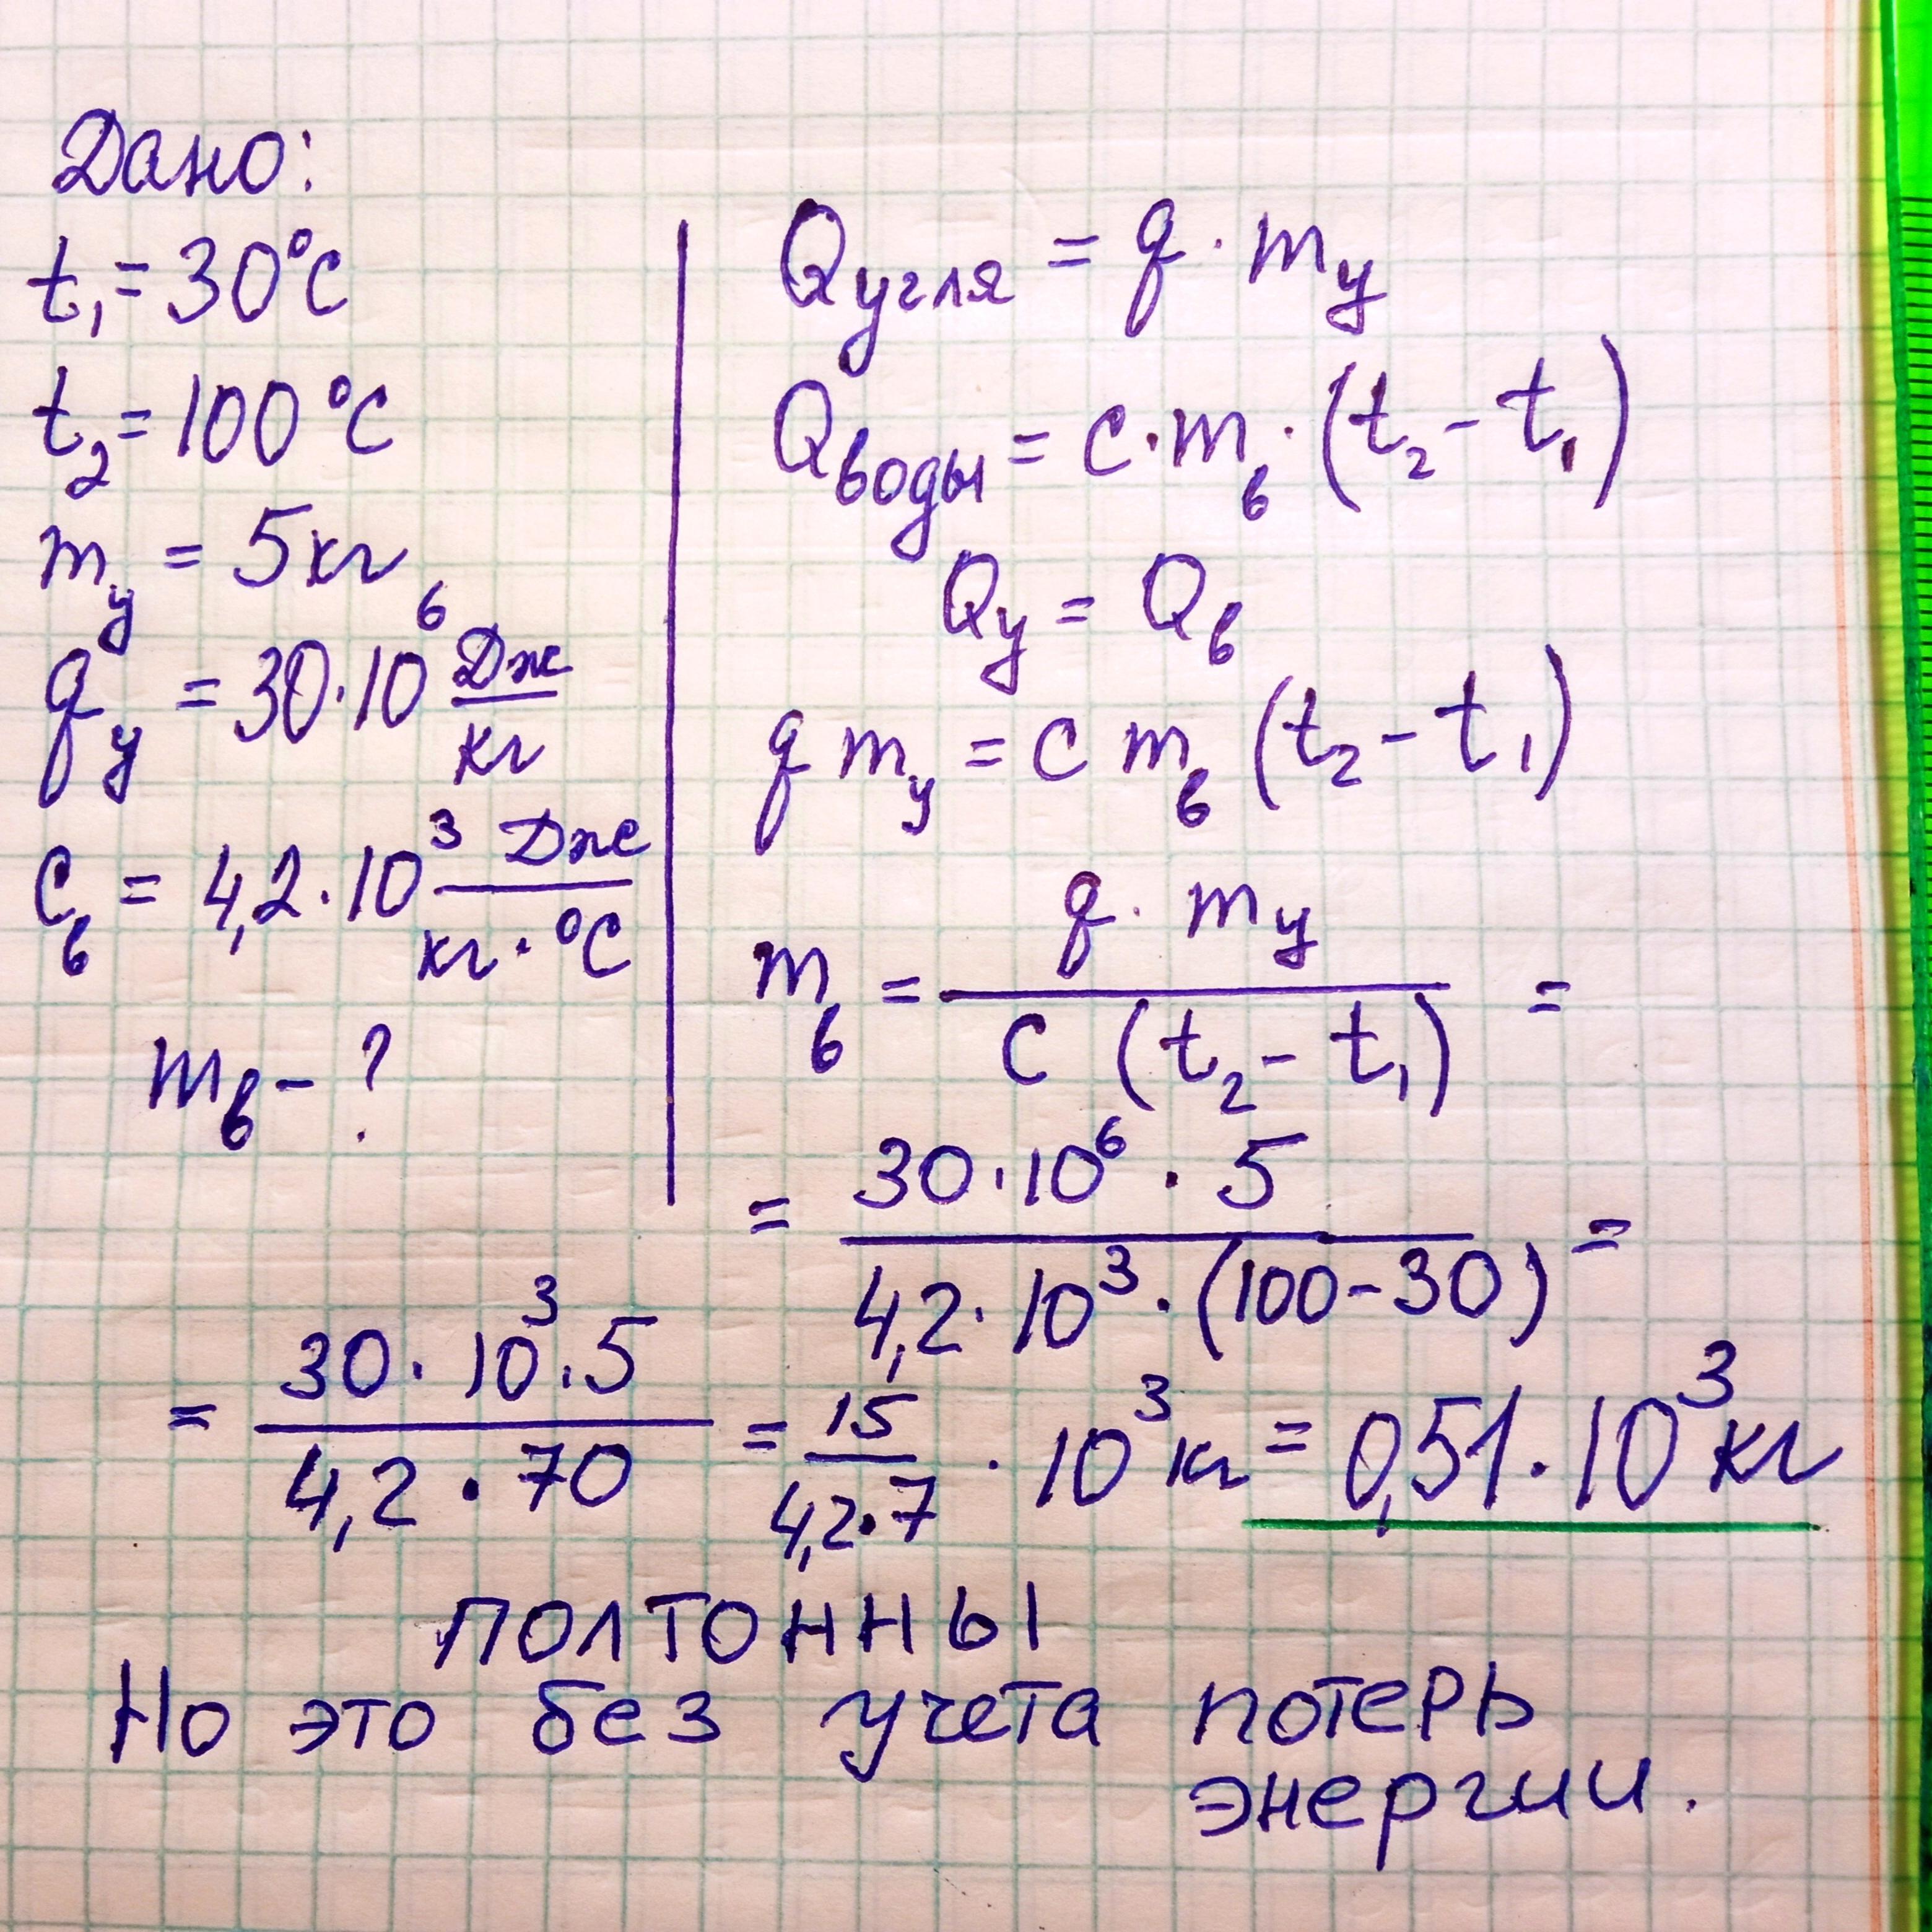 Дано:
t₁ = 30°C
t₂ = 100°C
m_у = 5 кг
q_у = 30·10⁶ Дж/кг
C_в = 4,2·10³ Дж/(кг·°C)
m_в - ?
Q_угля = q · m_у
Q_воды = c·m_в·(t₂ - t₁)
Q_у = Q_в
q m_у = c m_в (t₂ - t₁)
m_в = (q · m_у)/(c (t₂ - t₁)) =
= (30·10⁶ · 5)/(4,2·10³·(100-30)) =
= (30·10³·5)/(4,2·70) = 15/(4,2·7) · 10³ кг = 0,51·10³ кг
ПОЛТОННЫ
Но это без учета потерь
энергии.